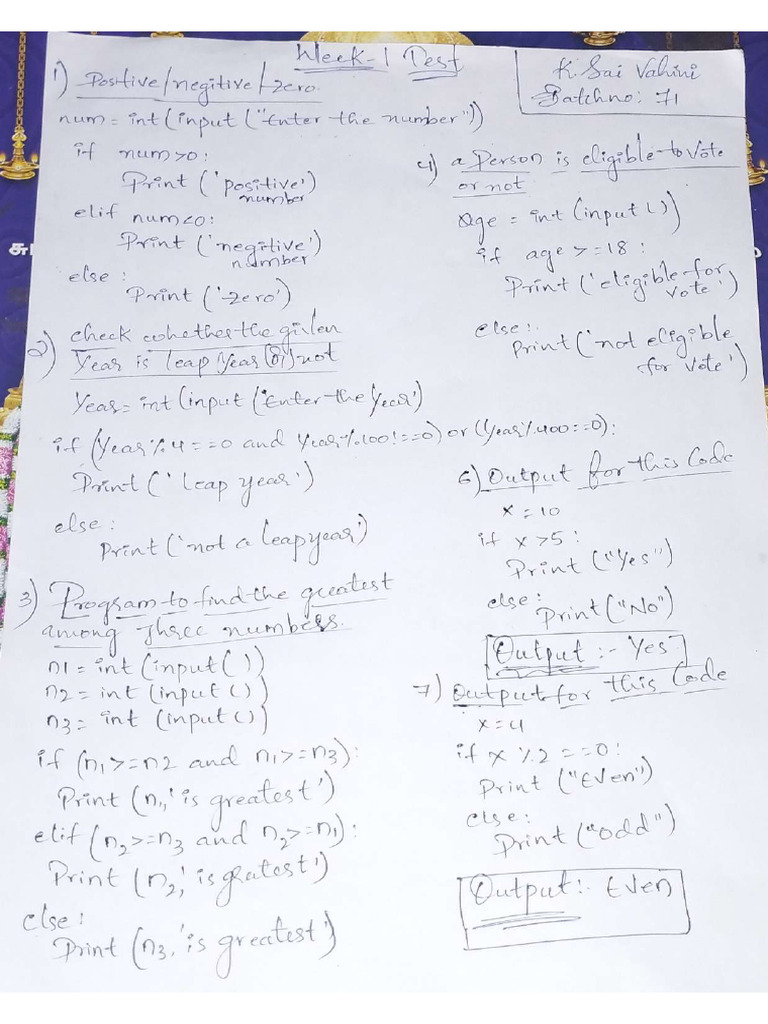 Week-1 Test
K Sai Vahini
Batchno: 71
1) Positive/negitive/zero.
num = int(input("Enter the number"))
if num>0:
Print ('positive')
number
elif num<0:
Print ('negitive')
number
else:
Print ('zero')
2) check whether the given
Year is leap year (or) not
Year = int(input('Enter the year')
if (Year % 4 == 0 and Year % 100! == 0) or (Year % 400 == 0):
Print (' leap year')
else:
Print ('not a leap year')
3) Program to find the greatest
among three numbers.
n1 = int (input())
n2 = int (input()
n3 = int (input()
if (n1>=n2 and n1>=n3):
Print (n1,'is greatest')
elif (n2>=n3 and n2>=n1):
Print (n2,'is gratest')
else:
Print (n3,'is greatest')
4) a Person is eligible to vote
or not
age = int (input())
if age >= 18 :
Print ('eligible for
vote')
else:
Print ('not eligible
for vote')
6) Output for this Code
x = 10
if x >5 :
Print ("Yes")
else:
Print ("No")
Output :- Yes
7) Output for this Code
x = 4
if x % 2 == 0:
Print ("Even")
else:
Print ("odd")
Output:- Even
சு